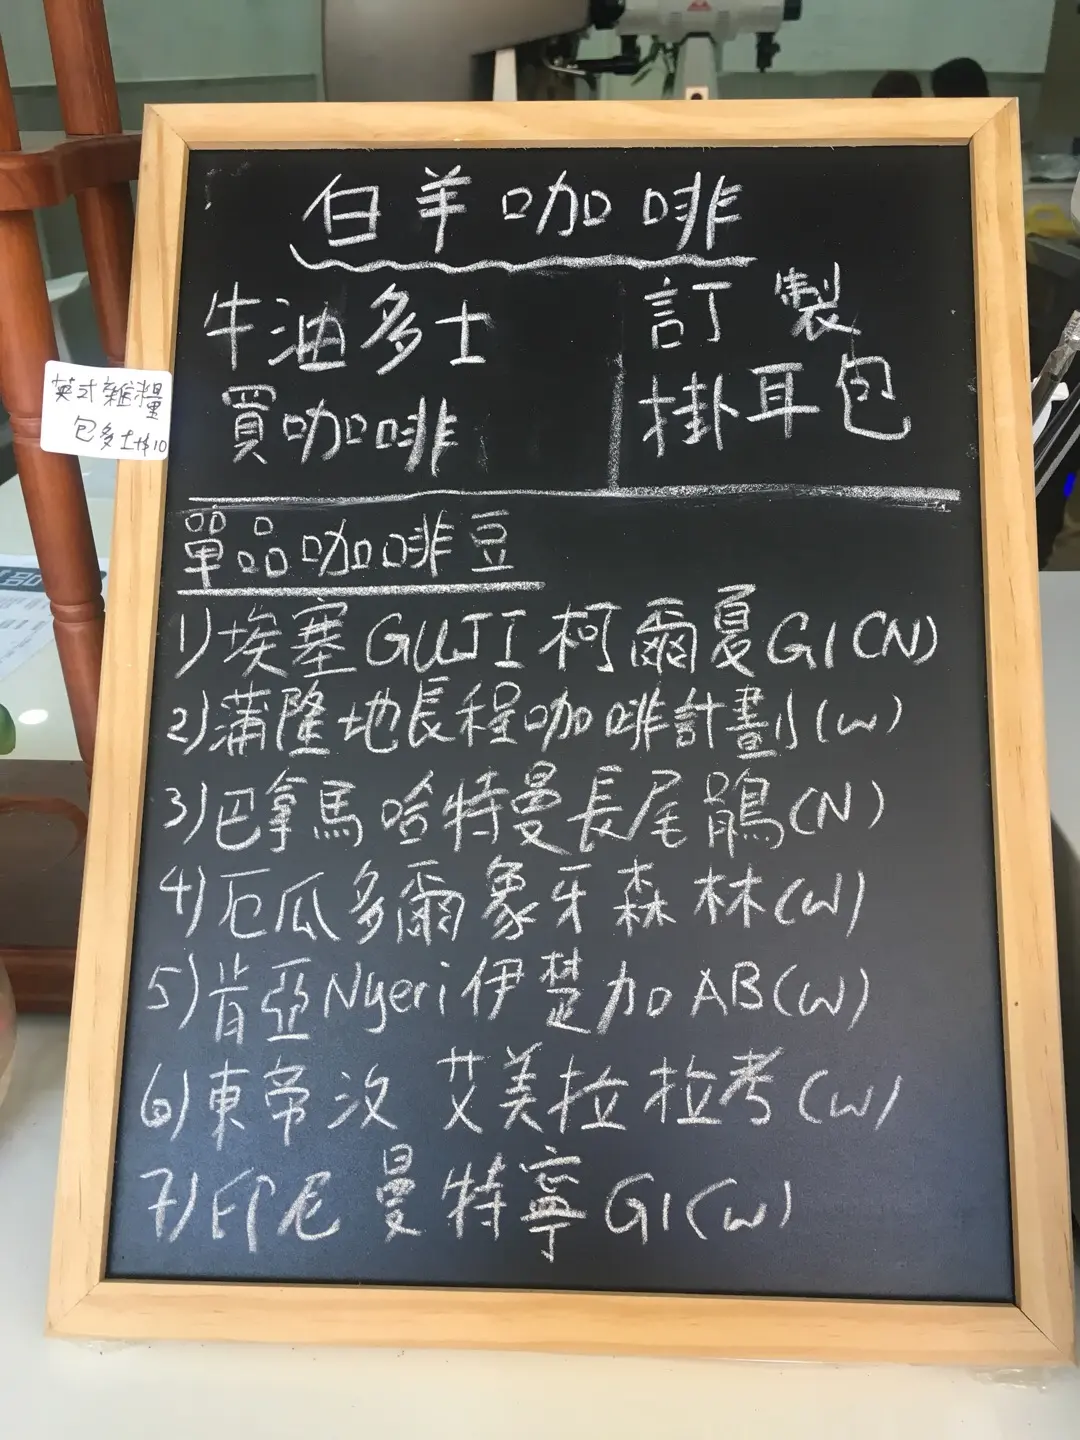 白羊咖啡
牛油多士
買咖啡
訂製
掛耳包
英式雜糧
包多士$10
單品咖啡豆
1)埃塞GUJI柯爾戛G1(N)
2)蒲隆地長程咖啡計劃(W)
3)巴拿馬哈特曼長尾鵑(N)
4)厄瓜多爾象牙森林(W)
5)肯亞Nyeri伊楚加AB(W)
6)東帝汶 艾美拉拉考(W)
7)印尼曼特寧G1(W)